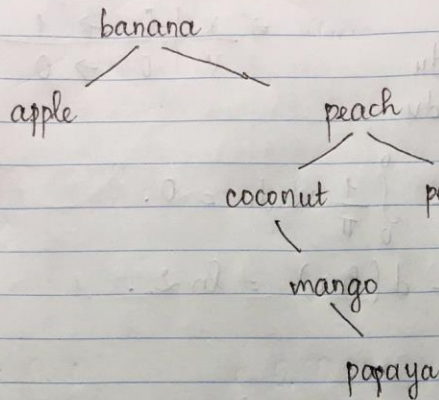 banana
apple peach
coconut
mango
papaya